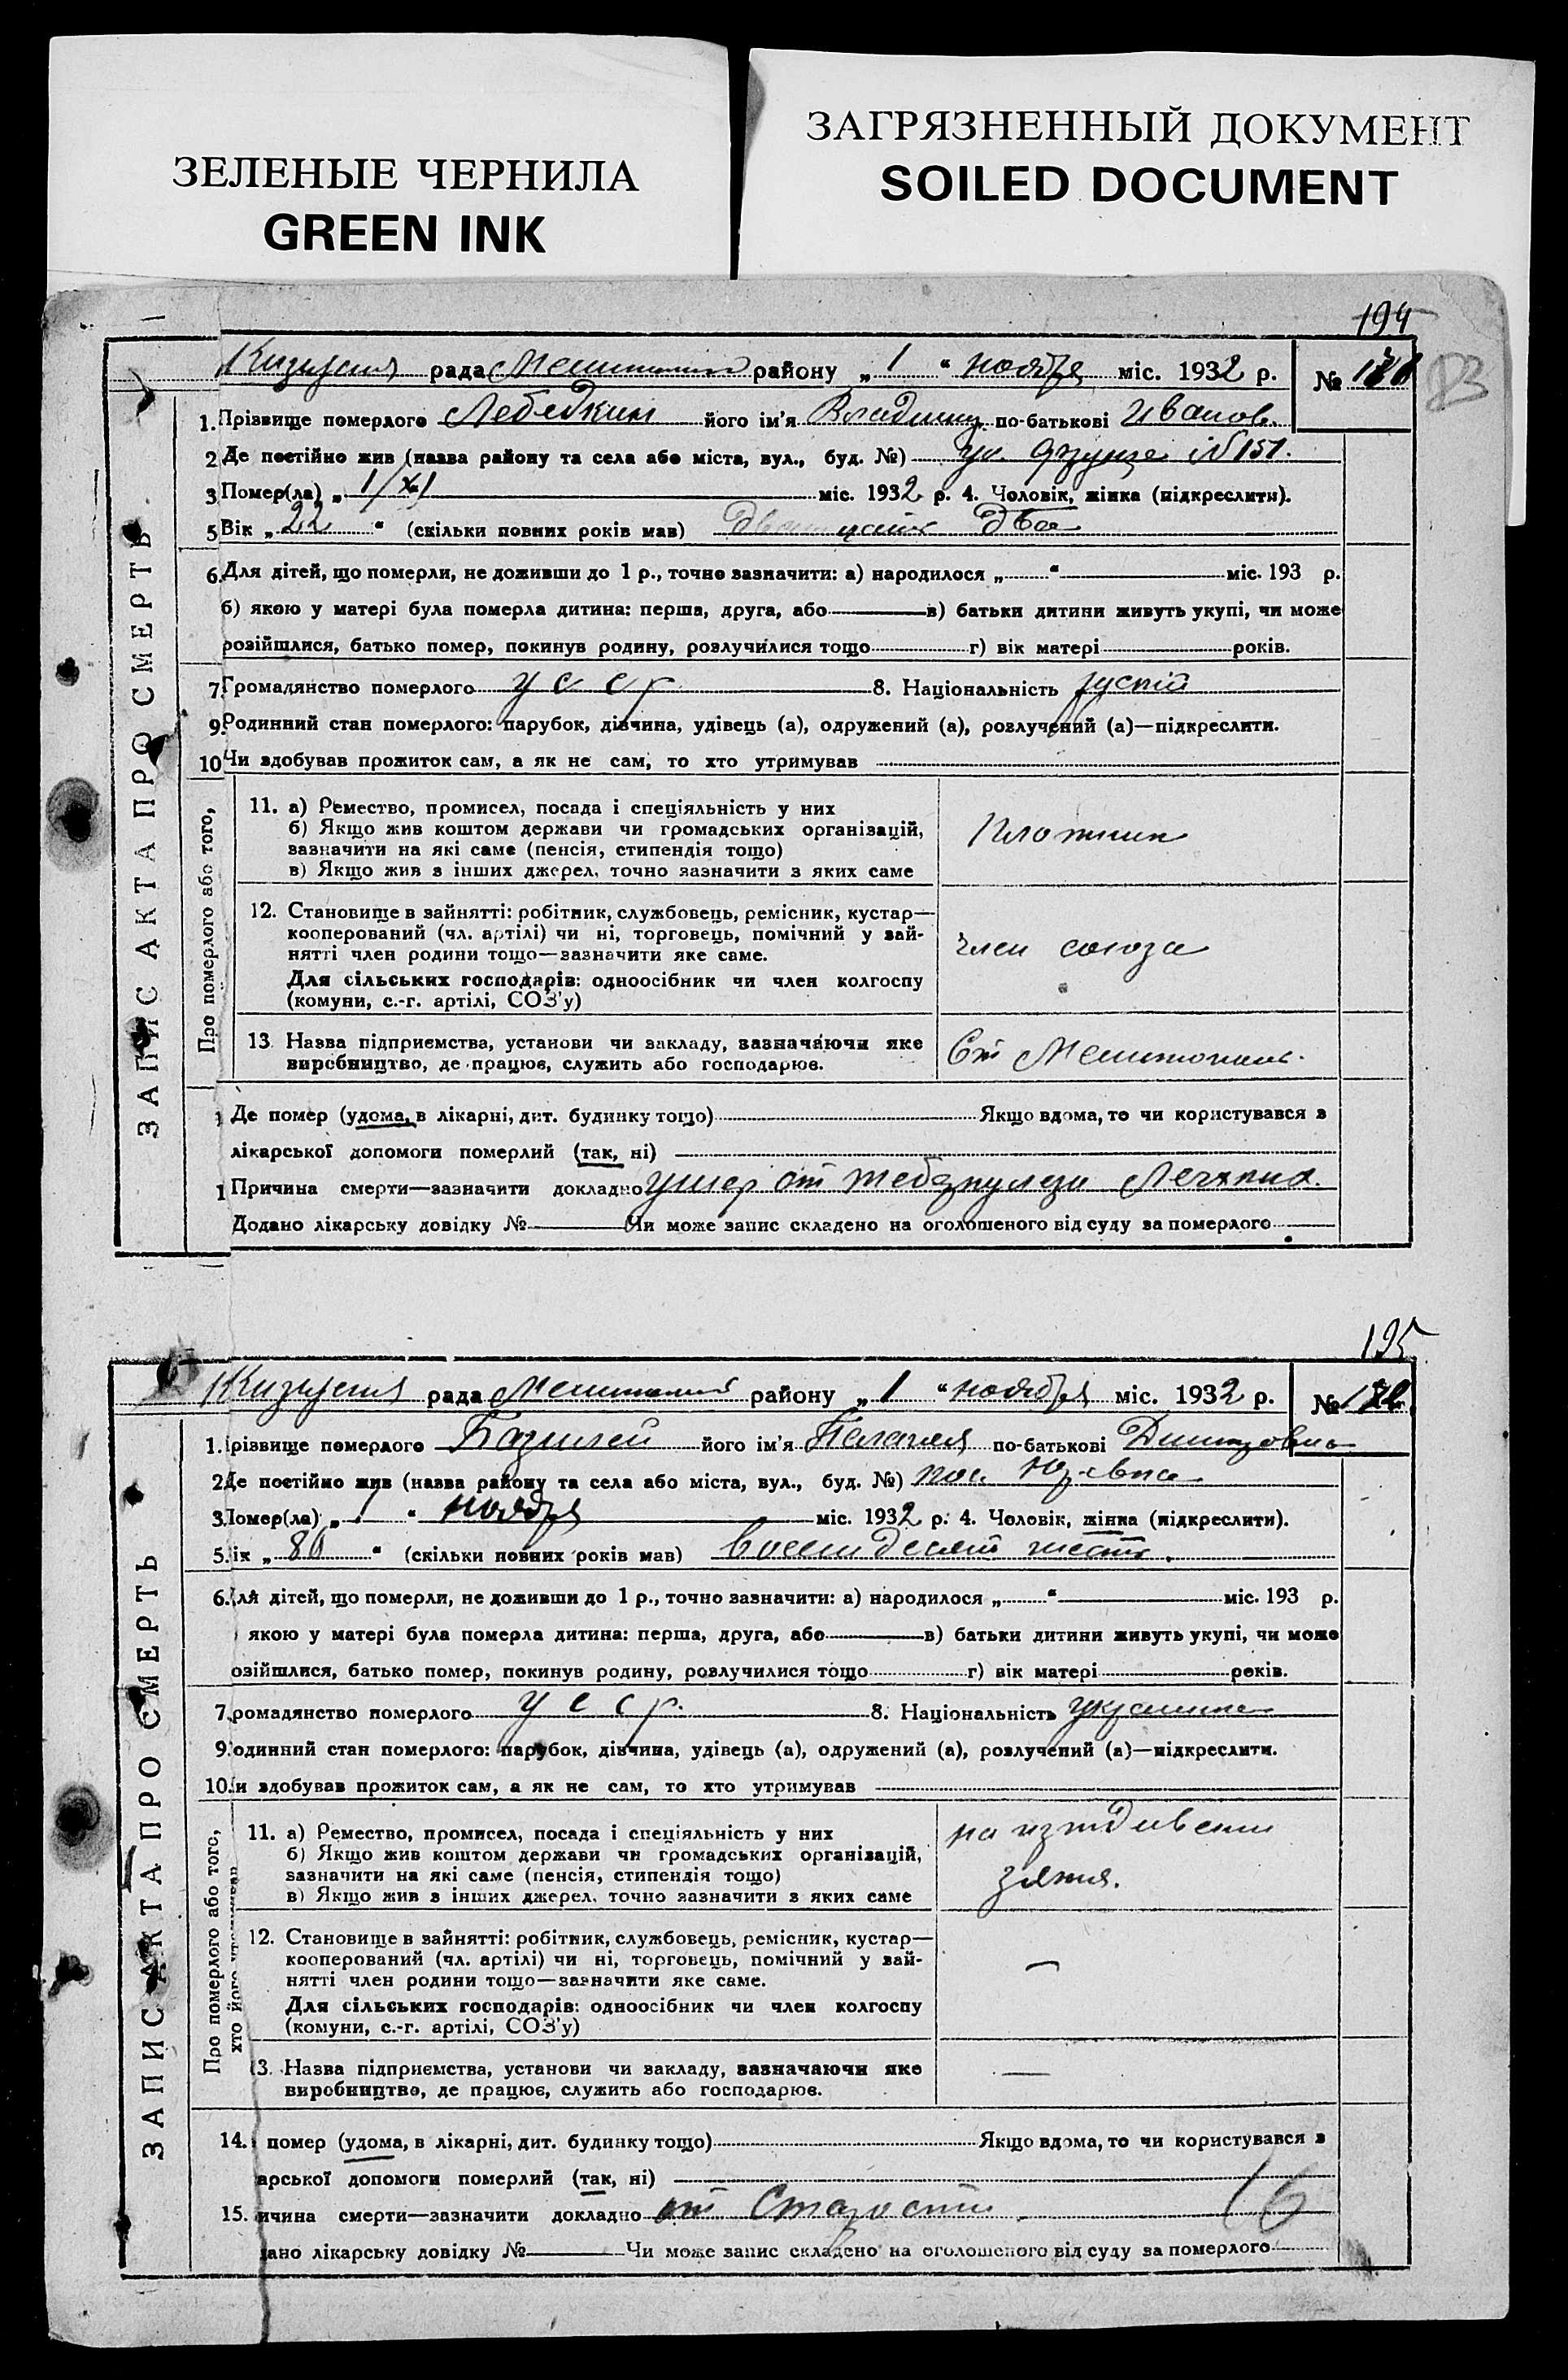 ЗЕЛЕНЫЕ ЧЕРНИЛА
GREEN INK
ЗАГРЯЗНЕННЫЙ ДОКУМЕНТ
SOILED DOCUMENT
194
рада района „ 1 “ ноября міс. 1932 р. №
83
ЗАПИС АКТА ПРО СМЕРТЬ
1. Прізвище померлого Лебедкин його ім’я Владимир по-батькові Иванов.
2 Де постійно жив (назва району та села або міста, вул., буд. №) ул Фрунзе №151.
3 Помер(ла) „ 1/XI міс. 1932 р. 4. Чоловік, жінка (підкреслити).
5 Вік „ 22 “ (скільки повних років мав) двадцать два
6. Для дітей, що померли, не доживши до 1 р., точно зазначити: а) народилося „ “ міс. 193 р.
б) якою у матері була померла дитина: перша, друга, або в) батьки дитини живуть укупі, чи може
розійшлися, батько помер, покинув родину, розлучилися тощо г) вік матері років.
7. Громадянство померлого УССР 8. Національність руский
9. Родинний стан померлого: парубок, дівчина, удівець (а), одружений (а), розлучений (а)—підкреслити.
10 Чи здобував прожиток сам, а як не сам, то хто утримував
Про померлого або того,
11. а) Ремество, промисел, посада і спеціяльність у них
б) Якщо жив коштом держави чи громадських організацій,
зазначити на які саме (пенсія, стипендія тощо)
в) Якщо жив з інших джерел, точно зазначити з яких саме
Плотник
12. Становище в зайнятті: робітник, службовець, ремісник, кустар—
кооперований (чл. артілі) чи ні, торговець, помічний у зай-
нятті член родини тощо—зазначити яке саме.
Для сільських господарів: одноосібник чи член колгоспу
(комуни, с.-г. артілі, СОЗ’у)
член союза
13 Назва підприємства, установи чи закладу, зазначаючи яке
виробництво, де працює, служить або господарює.
Ст Мелитополь.
1 Де помер (удома, в лікарні, дит. будинку тощо) Якщо вдома, то чи користувався з
лікарської допомоги померлий (так, ні)
1 Причина смерти—зазначити докладно умер от легких
Додано лікарську довідку № Чи може запис складено на оголошеного від суду за померлого
195
рада району „ 1 “ ноября міс. 1932 р. №
ЗАПИС АКТА ПРО СМЕРТЬ
1. різвище померлого його ім’я Пелагия по-батькові
2 Де постійно жив (назва району та села або міста, вул., буд. №) пос.
3. Помер(ла) „ 1 “ ноября міс. 1932 р. 4. Чоловік, жінка (підкреслити).
5. ік „ 86 “ (скільки повних років мав) восемдесят шесть.
6. ля дітей, що померли, не доживши до 1 р., точно зазначити: а) народилося „ “ міс. 193 р.
якою у матері була померла дитина: перша, друга, або в) батьки дитини живуть укупі, чи може
озійшлися, батько помер, покинув родину, розлучилися тощо г) вік матері років.
7. ромадянство померлого УССР. 8. Національність украинка
9. одинний стан померлого: парубок, дівчина, удівець (а), одружений (а), розлучений (а)—підкреслити.
10. и здобував прожиток сам, а як не сам, то хто утримував
Про померлого або того,
хто його
11. а) Ремество, промисел, посада і спеціяльність у них
б) Якщо жив коштом держави чи громадських організацій,
зазначити на які саме (пенсія, стипендія тощо)
в) Якщо жив з інших джерел, точно зазначити з яких саме
на
зятя.
12. Становище в зайнятті: робітник, службовець, ремісник, кустар—
кооперований (чл. артілі) чи ні, торговець, помічний у зай-
нятті член родини тощо—зазначити яке саме.
Для сільських господарів: одноосібник чи член колгоспу
(комуни, с.-г. артілі, СОЗ’у)
—
13. Назва підприємства, установи чи закладу, зазначаючи яке
виробництво, де працює, служить або господарює.
—
14. помер (удома, в лікарні, дит. будинку тощо) Якщо вдома, то чи користувався з
арської допомоги померлий (так, ні)
15. ичина смерти—зазначити докладно от старости
16
дано лікарську довідку № Чи може запис складено на оголошеного від суду за померлого